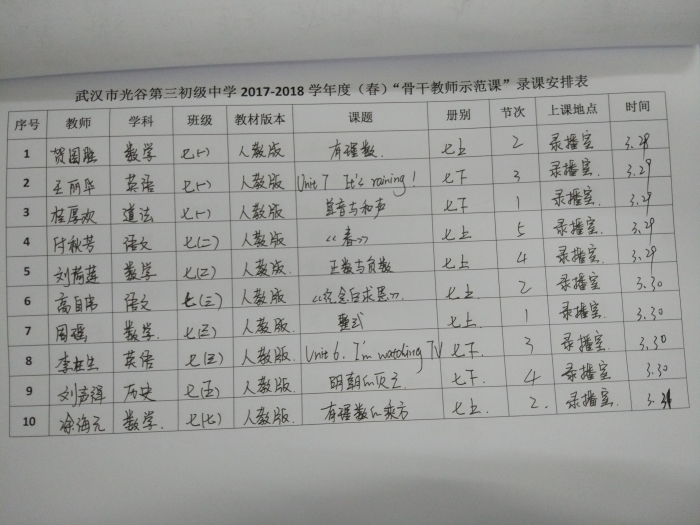 武汉市光谷第三初级中学 2017-2018 学年度（春）“骨干教师示范课”录课安排表
序号 教师 学科 班级 教材版本 课题 册别 节次 上课地点 时间
1 贺国胜 数学 七(一) 人教版 有理数. 七上 2 录播室 3.28
2 王丽华 英语 七(一) 人教版 Unit 7 It's raining! 七下 3 录播室. 3.29
3 程厚欢 道法 七(一) 人教版 单音与和声 七下 1 录播室. 3.29
4 付秋芳 语文 七(二) 人教版 《春》 七上 5 录播室. 3.29
5 刘荷莲 数学 七(三) 人教版. 正数与负数 七上 4 录播室. 3.29
6 高自伟 语文 七(三) 人教版 《纪念白求恩》. 七上 2 录播室 3.30
7 周瑶 数学. 七(五) 人教版. 整式 七上. 1 录播室. 3.30
8 英语 七(五) 人教版. Unit 6. I'm watching TV 七下. 3 录播室. 3.30
9 历史 七(五) 人教版. 明朝的灭亡 七下 4 录播室. 3.30
10 徐海元 数学. 七(七) 人教版. 有理数的乘方 七上. 2. 录播室. 3.31